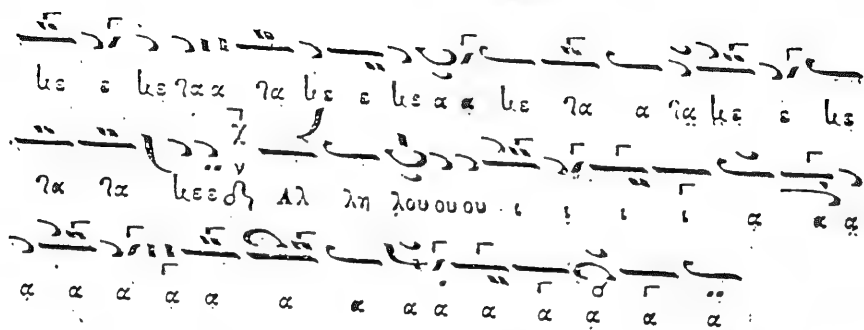 κε ε κε τα α τα κε ε κε α α κε τα α τα κε ε κε
τα τα κε ε Αλ λη λου ου ου ι ι ι ι α α α
α α α α α α α α α α α α α α